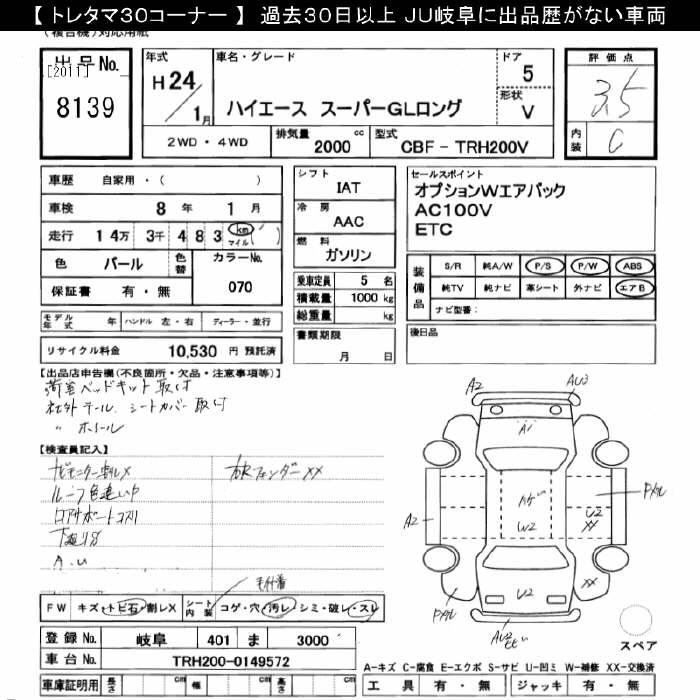 【トレタマ30コーナー】 過去30日以上 JU岐阜に出品歴がない車両
(複合機)対応用紙
出品No.
[2011]
8139
年式
H 24/1月
車名・グレード
ハイエース スーパーGLロング
ドア
5
形状
V
2WD・4WD
排気量 2000 cc
型式 CBF - TRH200V
評価点
3.5
内装 C
車歴 自家用・( )
車検 8年 1月
走行 14万 3千 4 8 3 km マイル ( )
色 パール 色替
カラーNo. 070
保証書 有・無
シフト
IAT
冷房
AAC
燃料
ガソリン
セールスポイント
オプションWエアバック
AC100V
ETC
乗車定員 5 名
積載量 1000 kg
総重量 kg
装備品
S/R 純A/W P/S P/W ABS
純TV 純ナビ 革シート 外ナビ エアB
ナビ型番:
モデル年式 年 ハンドル 左・右 ディーラー・並行
書類期限
月 日
後日品
リサイクル料金 10,530 円 預託済
【出品店申告欄(不良箇所・欠品・注意事項等)】
荷室ベッドキット取付
社外テール. シートカバー取付
〃 ホイール
【検査員記入】
ナビモニター割レX
右Rフェンダー XX
ルーフ色違い中
ロアサポートコスリ
下廻りS
A.U
毛付着
FW キズ・トビ石・割レX
シート内装 コゲ・穴・汚レ・シミ・破レ・スレ
A2
AU3
A1
A2
ハゲ
W2
P大化
U2
XX
XX
U2
P大化
AU2
スペア
登録No. 岐阜 401 ま 3000
車台No. TRH200-0149572
A-キズ C-腐食 E-エクボ S-サビ U-凹ミ W-補修 XX-交換済
車庫証明用 長さ cm 幅 cm 高さ cm
工具 有・無 ジャッキ 有・無